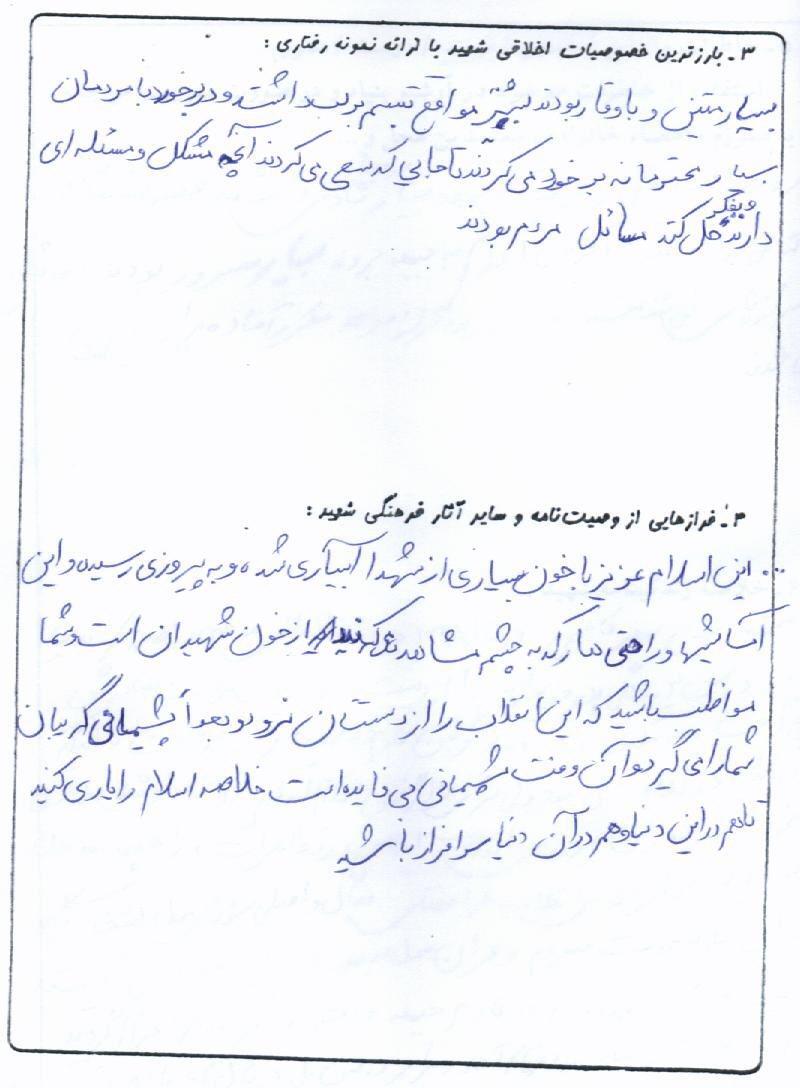 ۳ـ بارزترین خصوصیات اخلاقی شهید با ارائه نمونه رفتاری :
بسیار متین و با وقار بودند بیشتر مواقع تبسم بر لب داشتند و در برخورد با مردمان
بسیار محترمانه برخورد می کردند تا جایی که سعی می کردند آنچه مشکل و مسئله ای
دارند حل کند و بفکر مسائل مردم بودند
۴ـ فرازهایی از وصیت‌نامه و سایر آثار فرهنگی شهید :
... این اسلام عزیز با خون بسیاری از شهدا آبیاری شده و به پیروزی رسیده و این
آسایشها و راحتی ها را که به چشم مشاهده می کنید از خون شهیدان است و شما
مواظب باشید که این انقلاب را از دستان نرود و بعداً پشیمانی گریبان
شما را می گیرد و آن وقت پشیمانی بی فایده است خلاصه اسلام را یاری کنید
تا هم در این دنیا و هم در آن دنیا سرافراز باشید